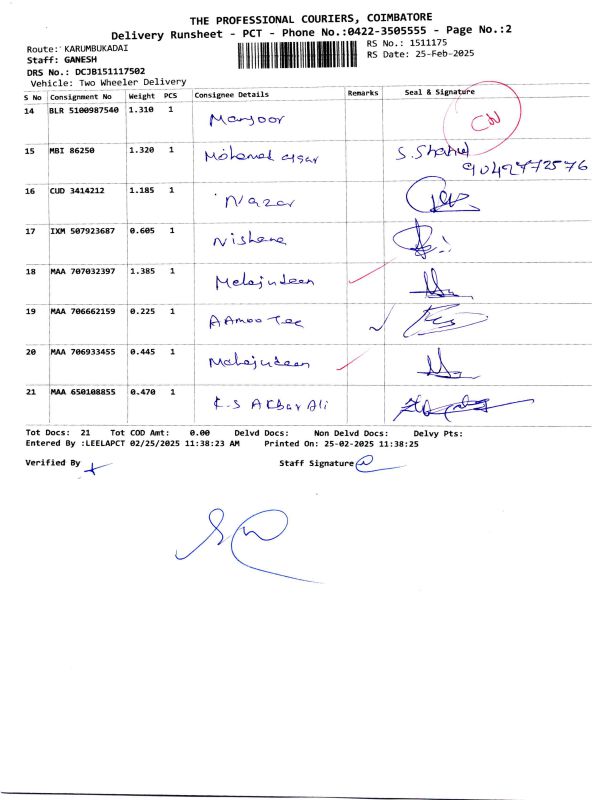 THE PROFESSIONAL COURIERS, COIMBATORE
Delivery Runsheet - PCT - Phone No.:0422-3505555 - Page No.:2
Route: KARUMBUKADAI
RS No.: 1511175
Staff: GANESH
RS Date: 25-Feb-2025
DRS No.: DCJB151117502
Vehicle: Two Wheeler Delivery
S No Consignment No Weight PCS Consignee Details Remarks Seal & Signature
14 BLR 5100987540 1.310 1 Manjoor CN
15 MBI 86250 1.320 1 Mohamed S. Shahul
9042972576
16 CUD 3414212 1.185 1 Nazar
17 IXM 507923687 0.605 1 Nishana
18 MAA 707032397 1.385 1
19 MAA 706662159 0.225 1
20 MAA 706933455 0.445 1
21 MAA 650108855 0.470 1 K.S Akbar Ali
Tot Docs: 21 Tot COD Amt: 0.00 Delvd Docs: Non Delvd Docs: Delvy Pts:
Entered By :LEELAPCT 02/25/2025 11:38:23 AM Printed On: 25-02-2025 11:38:25
Verified By Staff Signature